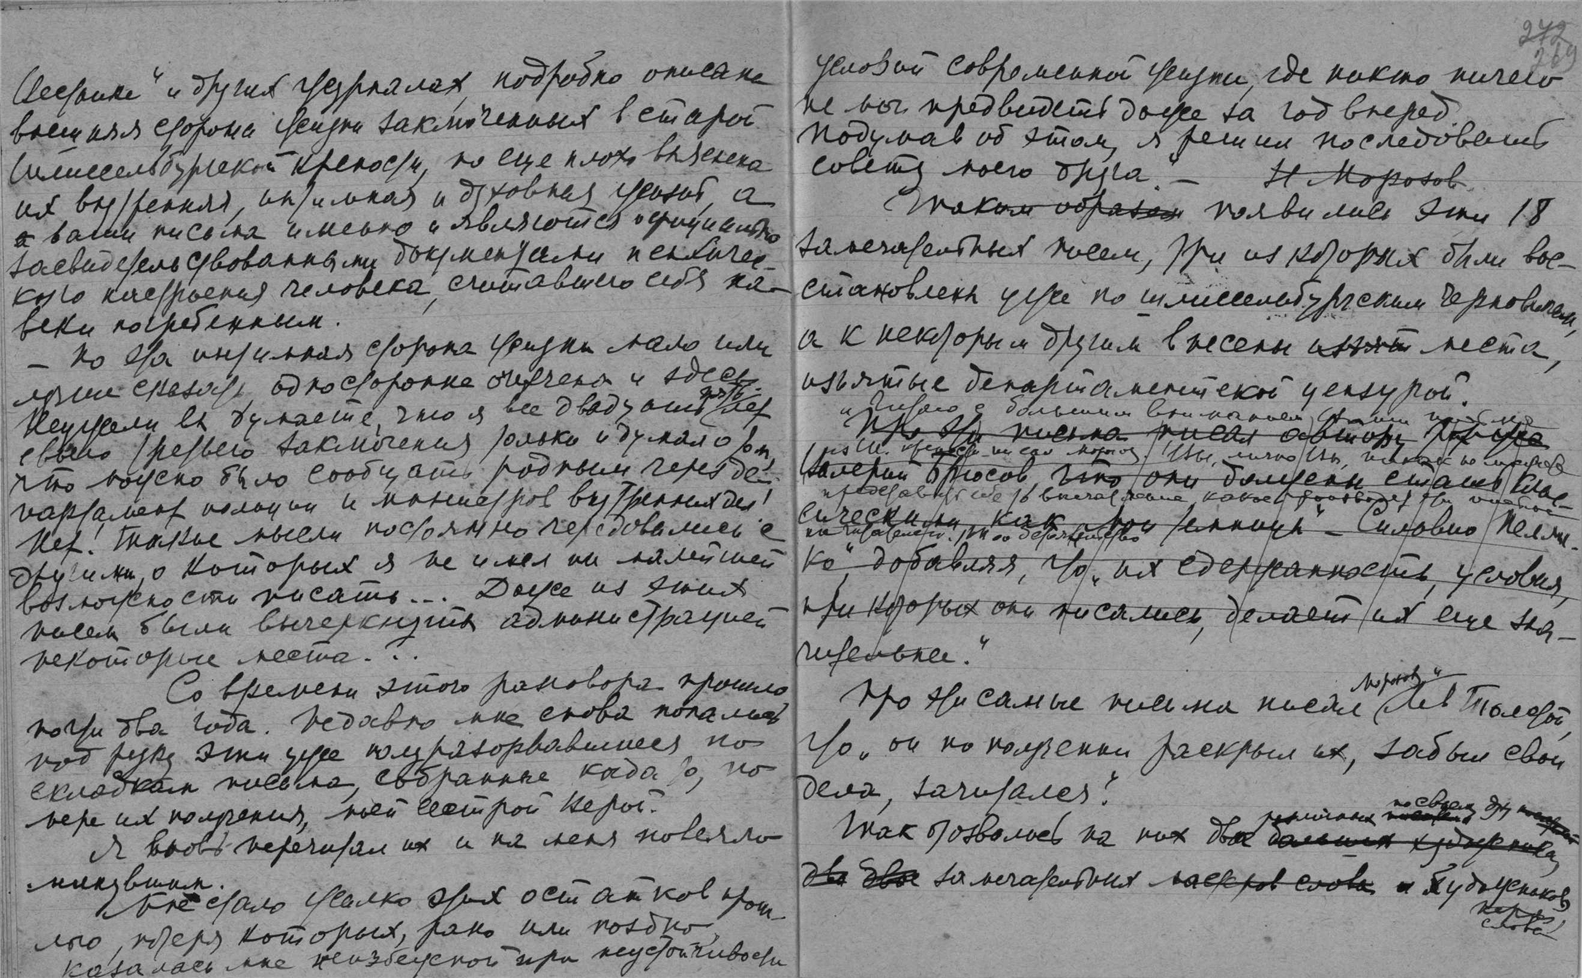 Вестнике" и других журналах, подробно описана
внешняя сторона жизни заключенных в старой
Шлиссельбургской крепости, но еще плохо выяснена
их внутренняя, интимная и духовная жизнь, а
а ваши письма именно и являются официально
засвидетельствованными документами психичес-
кого настроения человека, считавшего себя на-
веки погребенным.
— Но эта интимная сторона жизни мало или
лучше сказать, односторонне очерчена и здесь.
Неужели вы думаете, что я все двадцать пять лет
своего третьего заключения только и думал о том,
что можно было сообщать родным через де-
партамент полиции и министров внутренних дел!
Нет! Такие мысли постоянно чередовались с
другими, о которых я не имел ни малейшей
возможности писать... Даже из этих
писем были вычеркнуты администрацией
некоторые места...
Со времени этого разговора прошло
почти два года. Недавно мне снова попались
под руку эти уже полуразорвавшиеся по
складкам письма, собранные когда то, по
мере их получения, моей сестрой Верой.
Я вновь перечитал их и на меня повеяло
минувшим.
Мне стало жалко этих остатков прош-
лого, потеря которых, рано или поздно,
казалась мне неизбежной при неустойчивости
272
269
условий современной жизни, где никто ничего
не мог предвидеть даже за год вперед.
Подумав об этом, я решил последовать
совету моего друга." — Н Морозов
Таким образом появились эти 18
замечательных писем, три из которых были вос-
становлены уже по шлиссельбургским черновикам,
а к некоторым другим внесены места,
изъятые департаментской цензурой.
и с большим вниманием
Про эти письма писал автору
Валерий Брюсов, что они должны стать клас-
впечатление какое
сическими, как "Сильвио Пелли-
ко", добавляя, что "их сдержанность, условия,
при которых они писались, делает их еще зна-
чительнее."
Про эти самые письма писал Морозову Лев Толстой,
что "он по получении раскрыл их, забыл свои
дела, зачитался".
Так отозвались на них два
замечательных мастеров слова и художников
слова